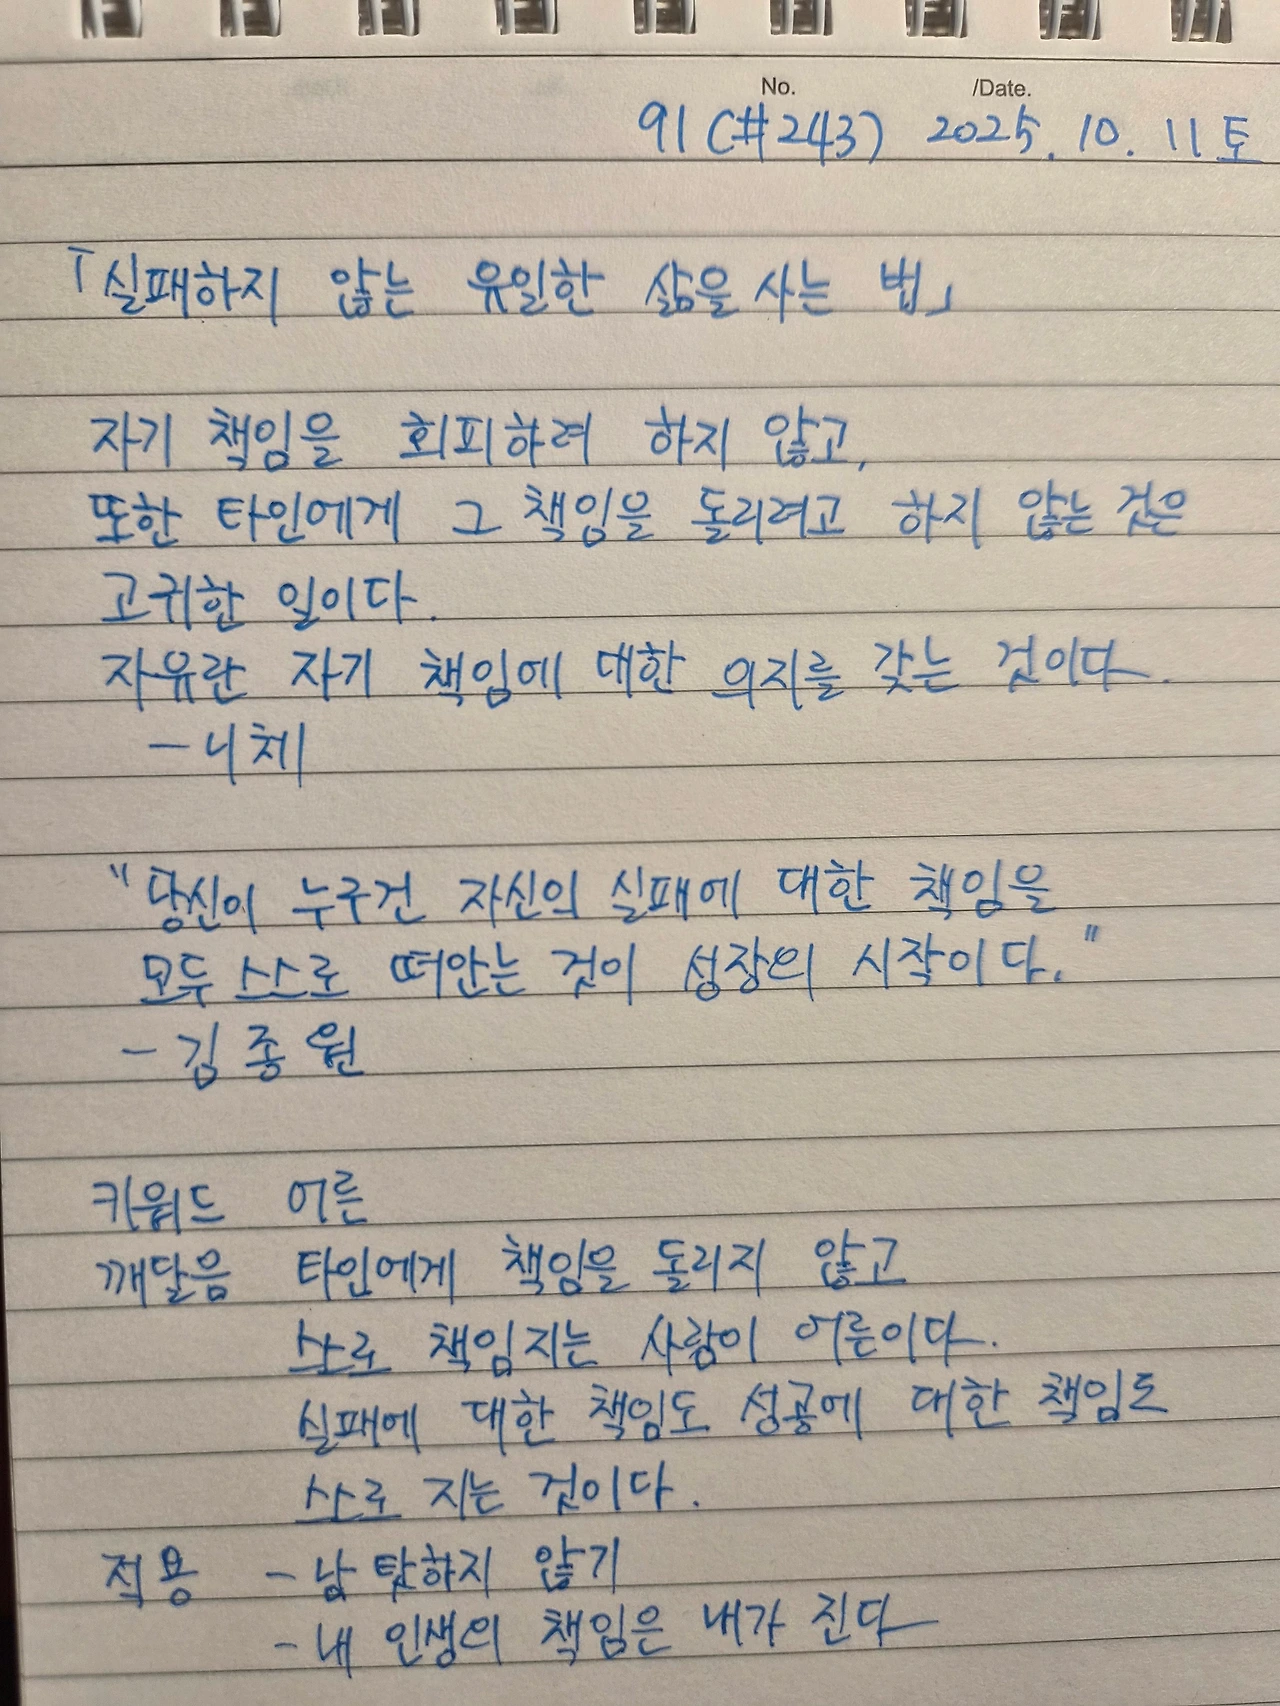 No. /Date.
91 (#243) 2025. 10. 11 토
「실패하지 않는 유일한 삶을 사는 법」
자기 책임을 회피하려 하지 않고,
또한 타인에게 그 책임을 돌리려고 하지 않는 것은
고귀한 일이다.
자유란 자기 책임에 대한 의지를 갖는 것이다.
- 니체
"당신이 누구건 자신의 실패에 대한 책임을
모두 스스로 떠안는 것이 성장의 시작이다."
- 김종원
키워드 어른
깨달음 타인에게 책임을 돌리지 않고
스스로 책임지는 사람이 어른이다.
실패에 대한 책임도 성공에 대한 책임도
스스로 지는 것이다.
적용 - 남 탓하지 않기
- 내 인생의 책임은 내가 진다